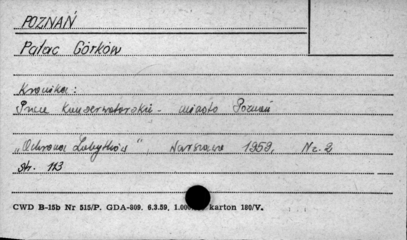 POZNAŃ
Pałac Górków
Kronika:
Prace konserwatorskie - miasto Poznań
"Ochrona Zabytków" Warszawa 1958, Nr. 2
str. 113
CWD B-15b Nr 515/P. GDA-809. 6.3.59, 1.000 karton 180/V.